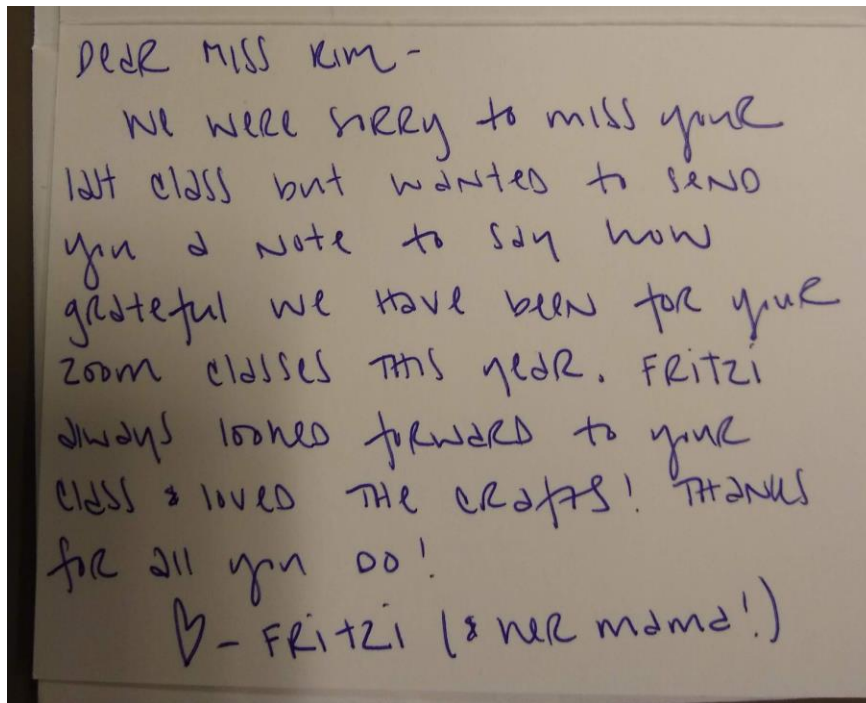 Dear Miss Kim -
We were sorry to miss your
last class but wanted to send
you a note to say how
grateful we have been for your
zoom classes this year. Fritzi
always looked forward to your
class & loved the crafts! Thanks
for all you do!
♡ - Fritzi (& her mama!)